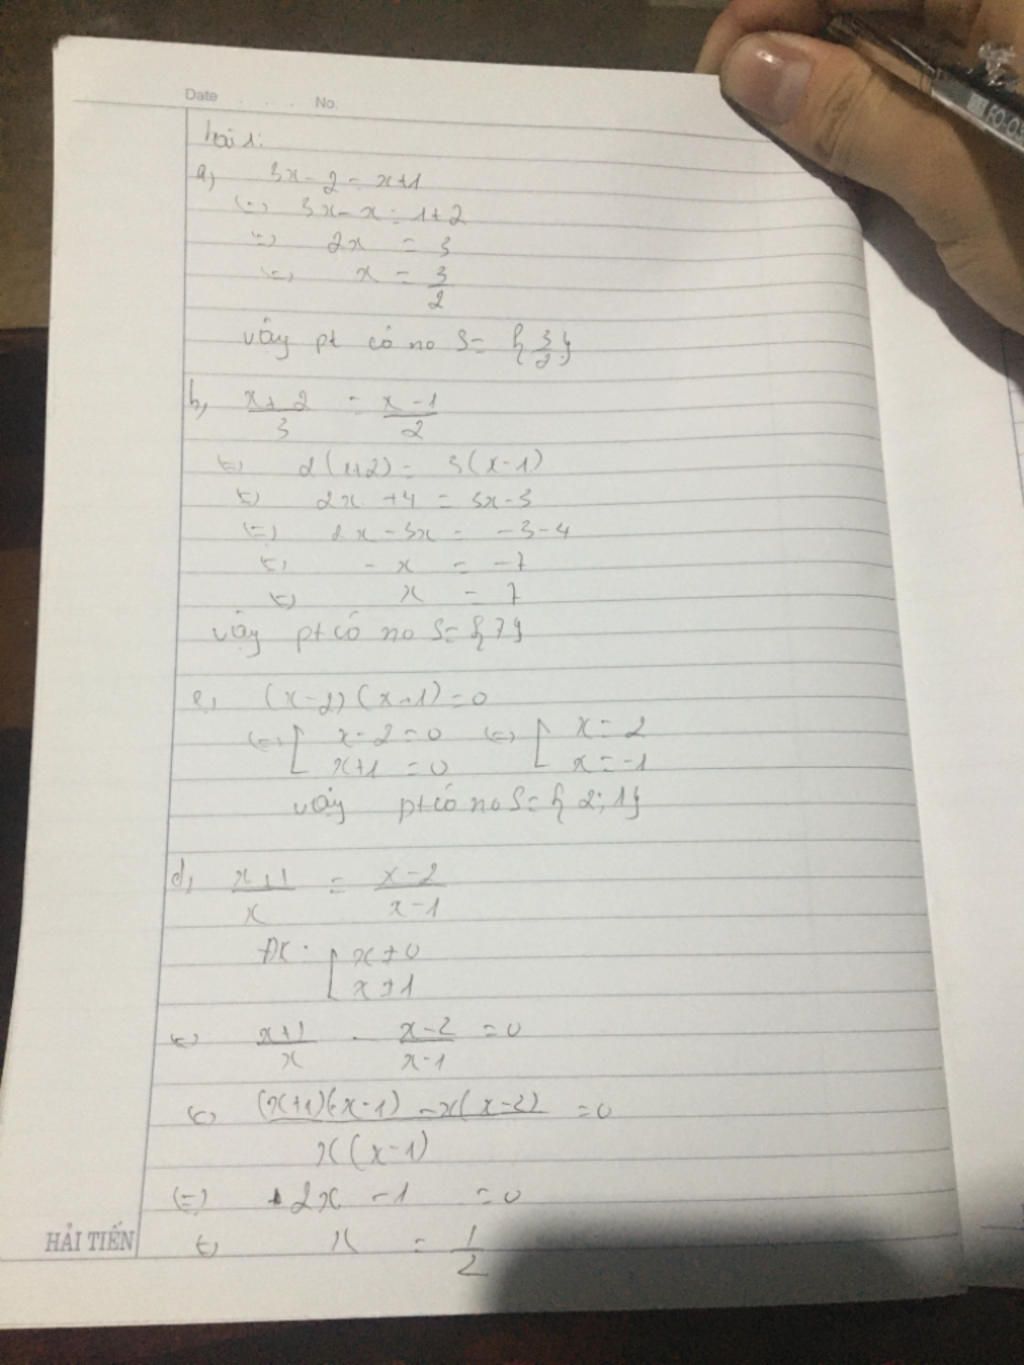 Date . . . . No.
bài 1:
a, 3x - 2 = x+1
(=) 3x - x = 1+2
(=) 2x = 3
(=) x = 3/2
vậy pt có no S = { 3/2 }
b, x+2/3 = x-1/2
(=) 2(x+2) = 3(x-1)
(=) 2x +4 = 3x-3
(=) 2x - 3x = -3-4
(=) - x = -7
(=) x = 7
vậy pt có no S = {7}
c, (x-2)(x+1)=0
(=) [ x-2=0 (=) [ x=2
x+1 =0 x=-1
vậy pt có no S={ 2; 1}
d, x+1/x = x-2/x-1
ĐK: [ x≠0
x≠1
(=) x+1/x - x-2/x-1 =0
(=) (x+1)(x-1) -x(x-2)/x(x-1) =0
(=) 2x -1 =0
(=) x = 1/2
HẢI TIẾN